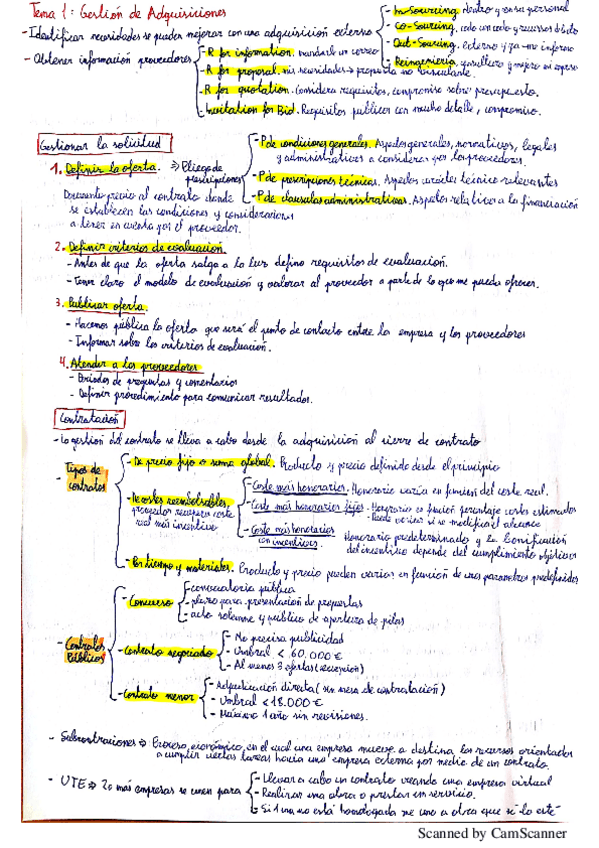 Tema 1: Gestión de Adquisiciones
- Identificar necesidades se pueden mejorar con una adquisición externa
- In-Sourcing. dentro y con personal
- Co-Sourcing.
- Out-Sourcing. externo y ya no interno
- Reingeniería.
- Obtener información proveedores
- R for information. mandarle un correo
- R for proposal. mis necesidades → propuesta no vinculante.
- R for quotation. Considera requisitos, compromiso sobre presupuesto.
- Invitation for Bid. Requisitos publicos con mucho detalle, compromiso.
Gestionar la solicitud
1. Definir la oferta. ⇒ Pliego de prescripciones
- P de condiciones generales. Aspectos generales, normativos, legales
y administrativos a considerar por los proveedores.
- P de prescripciones técnicas. Aspectos carácter técnico relevantes
- P de clausulas administrativas. Aspectos relativos a la financiación
Documento previo al contrato donde
se establecen las condiciones y consideraciones
a tener en cuenta por el proveedor.
2. Definir criterios de evaluación
- Antes de que la oferta salga a la luz defino requisitos de evaluación.
- Tener claro el modelo de evaluación y valorar al proveedor a parte de lo que me pueda ofrecer.
3. Publicar oferta.
- Hacemos pública la oferta que será el punto de contacto entre la empresa y los proveedores
- Informar sobre los criterios de evaluación.
4. Atender a los proveedores
- Periodos de preguntas y comentarios
- Definir procedimiento para comunicar resultados.
Contratación
- La gestión del contrato se lleva a cabo desde la adquisición al cierre de contrato
- Tipos de contratos
- De precio fijo o suma global. Producto y precio definido desde el principio
- De costes reembolsables,
proveedor recupera coste
real más incentivo
- Coste más honorarios. Honorario varía en función del coste real.
- Coste más honorarios fijos - Honorario en función porcentaje costes estimados
- Puede variar si se modifica el alcance
- Coste más honorarios
con incentivos.
Honorario predeterminado y la bonificación
del incentivo depende del cumplimiento objetivos
- Por tiempo y materiales. Producto y precio pueden variar en función de unos parametros predefinidos
- Contratos Públicos
- Concurso
- convocatoria pública
- plazo para presentación de propuestas
- acto solemne y público de apertura de plicas
- Contrato negociado
- No precisa publicidad
- Umbral < 60.000 €
- Al menos 3 ofertas (excepción)
- Contrato menor
- Adjudicación directa (sin mesa de contratación)
- Umbral < 18.000 €
- Máximo 1 año sin revisiones.
- Subcontrataciones ⇒ Proceso económico en el cual una empresa mueve o destina los recursos orientados
a cumplir ciertas tareas hacia una empresa externa por medio de un contrato.
- UTE ⇒ 2 o más empresas se unen para
- Llevar a cabo un contrato creando una empresa virtual
- Realizar una obra o prestar un servicio.
- Si 1 una no está homologada me uno a otra que si lo esté
Scanned by CamScanner